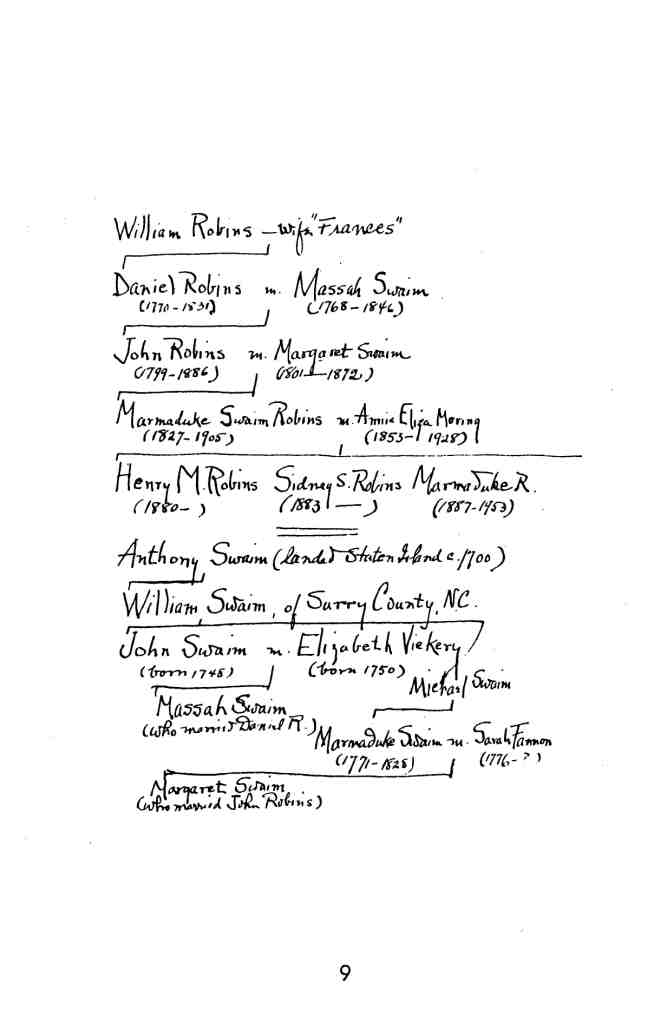 William Robins — wife "Frances"
Daniel Robins m. Massah Swaim
(1770-1831) (1768-1846)
John Robins m. Margaret Swaim
(1799-1886) (1801-1872)
Marmaduke Swaim Robins m. Annie Eliza Moring
(1827-1905) (1853-1928)
Henry M. Robins Sidney S. Robins Marmaduke R.
(1880- ) (1883 — ) (1887-1953)
Anthony Swaim (landed Staten Island c. 1700)
William Swaim, of Surry County, NC.
John Swaim m. Elizabeth Vickery
(born 1748) (born 1750)
Michael Swaim
Massah Swaim
(who married Daniel R.)
Marmaduke Swaim m. Sarah Fannon
(1771-1828) (1776-?)
Margaret Swaim
(who married John Robins)
9